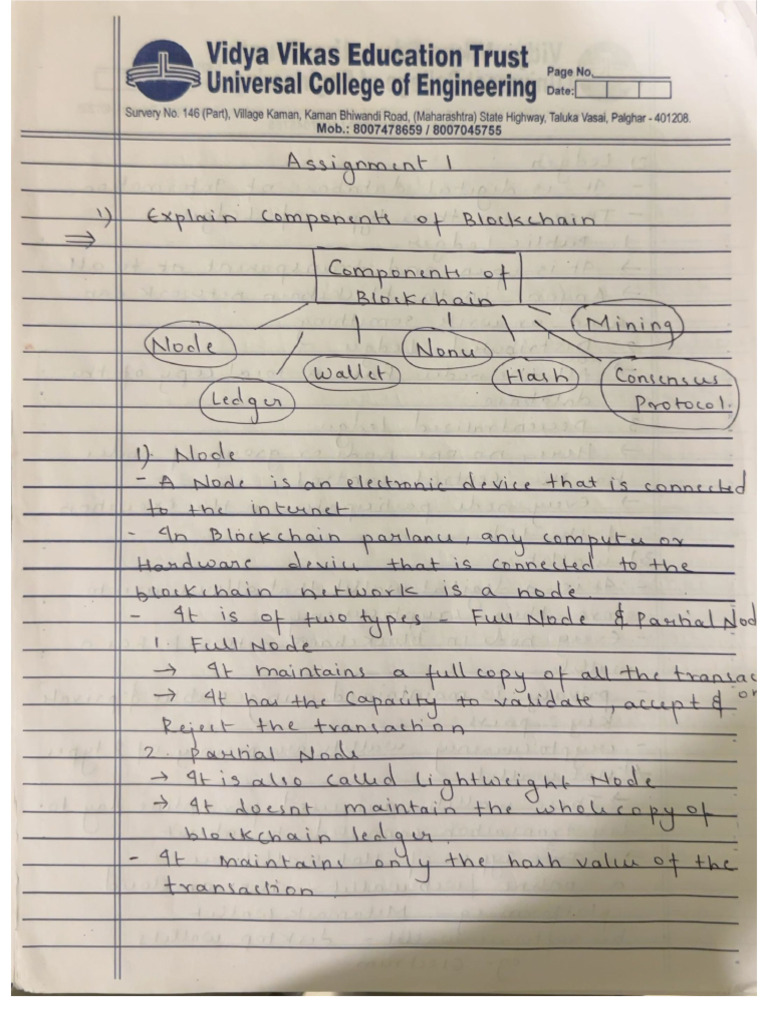 Vidya Vikas Education Trust
Universal College of Engineering
Page No.
Date:
Survery No. 146 (Part), Village Kaman, Kaman Bhiwandi Road, (Maharashtra) State Highway, Taluka Vasai, Palghar - 401208.
Mob.: 8007478659 / 8007045755
Assignment 1
1) Explain Components of Blockchain
⇒
Components of
Blockchain
Mining
Node
Nonce
Wallet
Hash
Consensus
Ledger
Protocol.
1). Node
- A Node is an electronic device that is connected
to the internet
- In Blockchain parlance, any computer or
Hardware device that is connected to the
blockchain network is a node.
- It is of two types - Full Node & Partial Nod
1. Full Node
→ It maintains a full copy of all the transac
→ It has the capacity to validate, accept & or
Reject the transaction
2. Partial Node
→ It is also called Lightweight Node
→ It doesnt maintain the whole copy of
blockchain ledger.
- It maintains only the hash value of the
transaction.